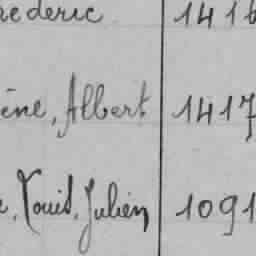 rederic 1416
ène, Albert 1417
, Louis, Julien 1091